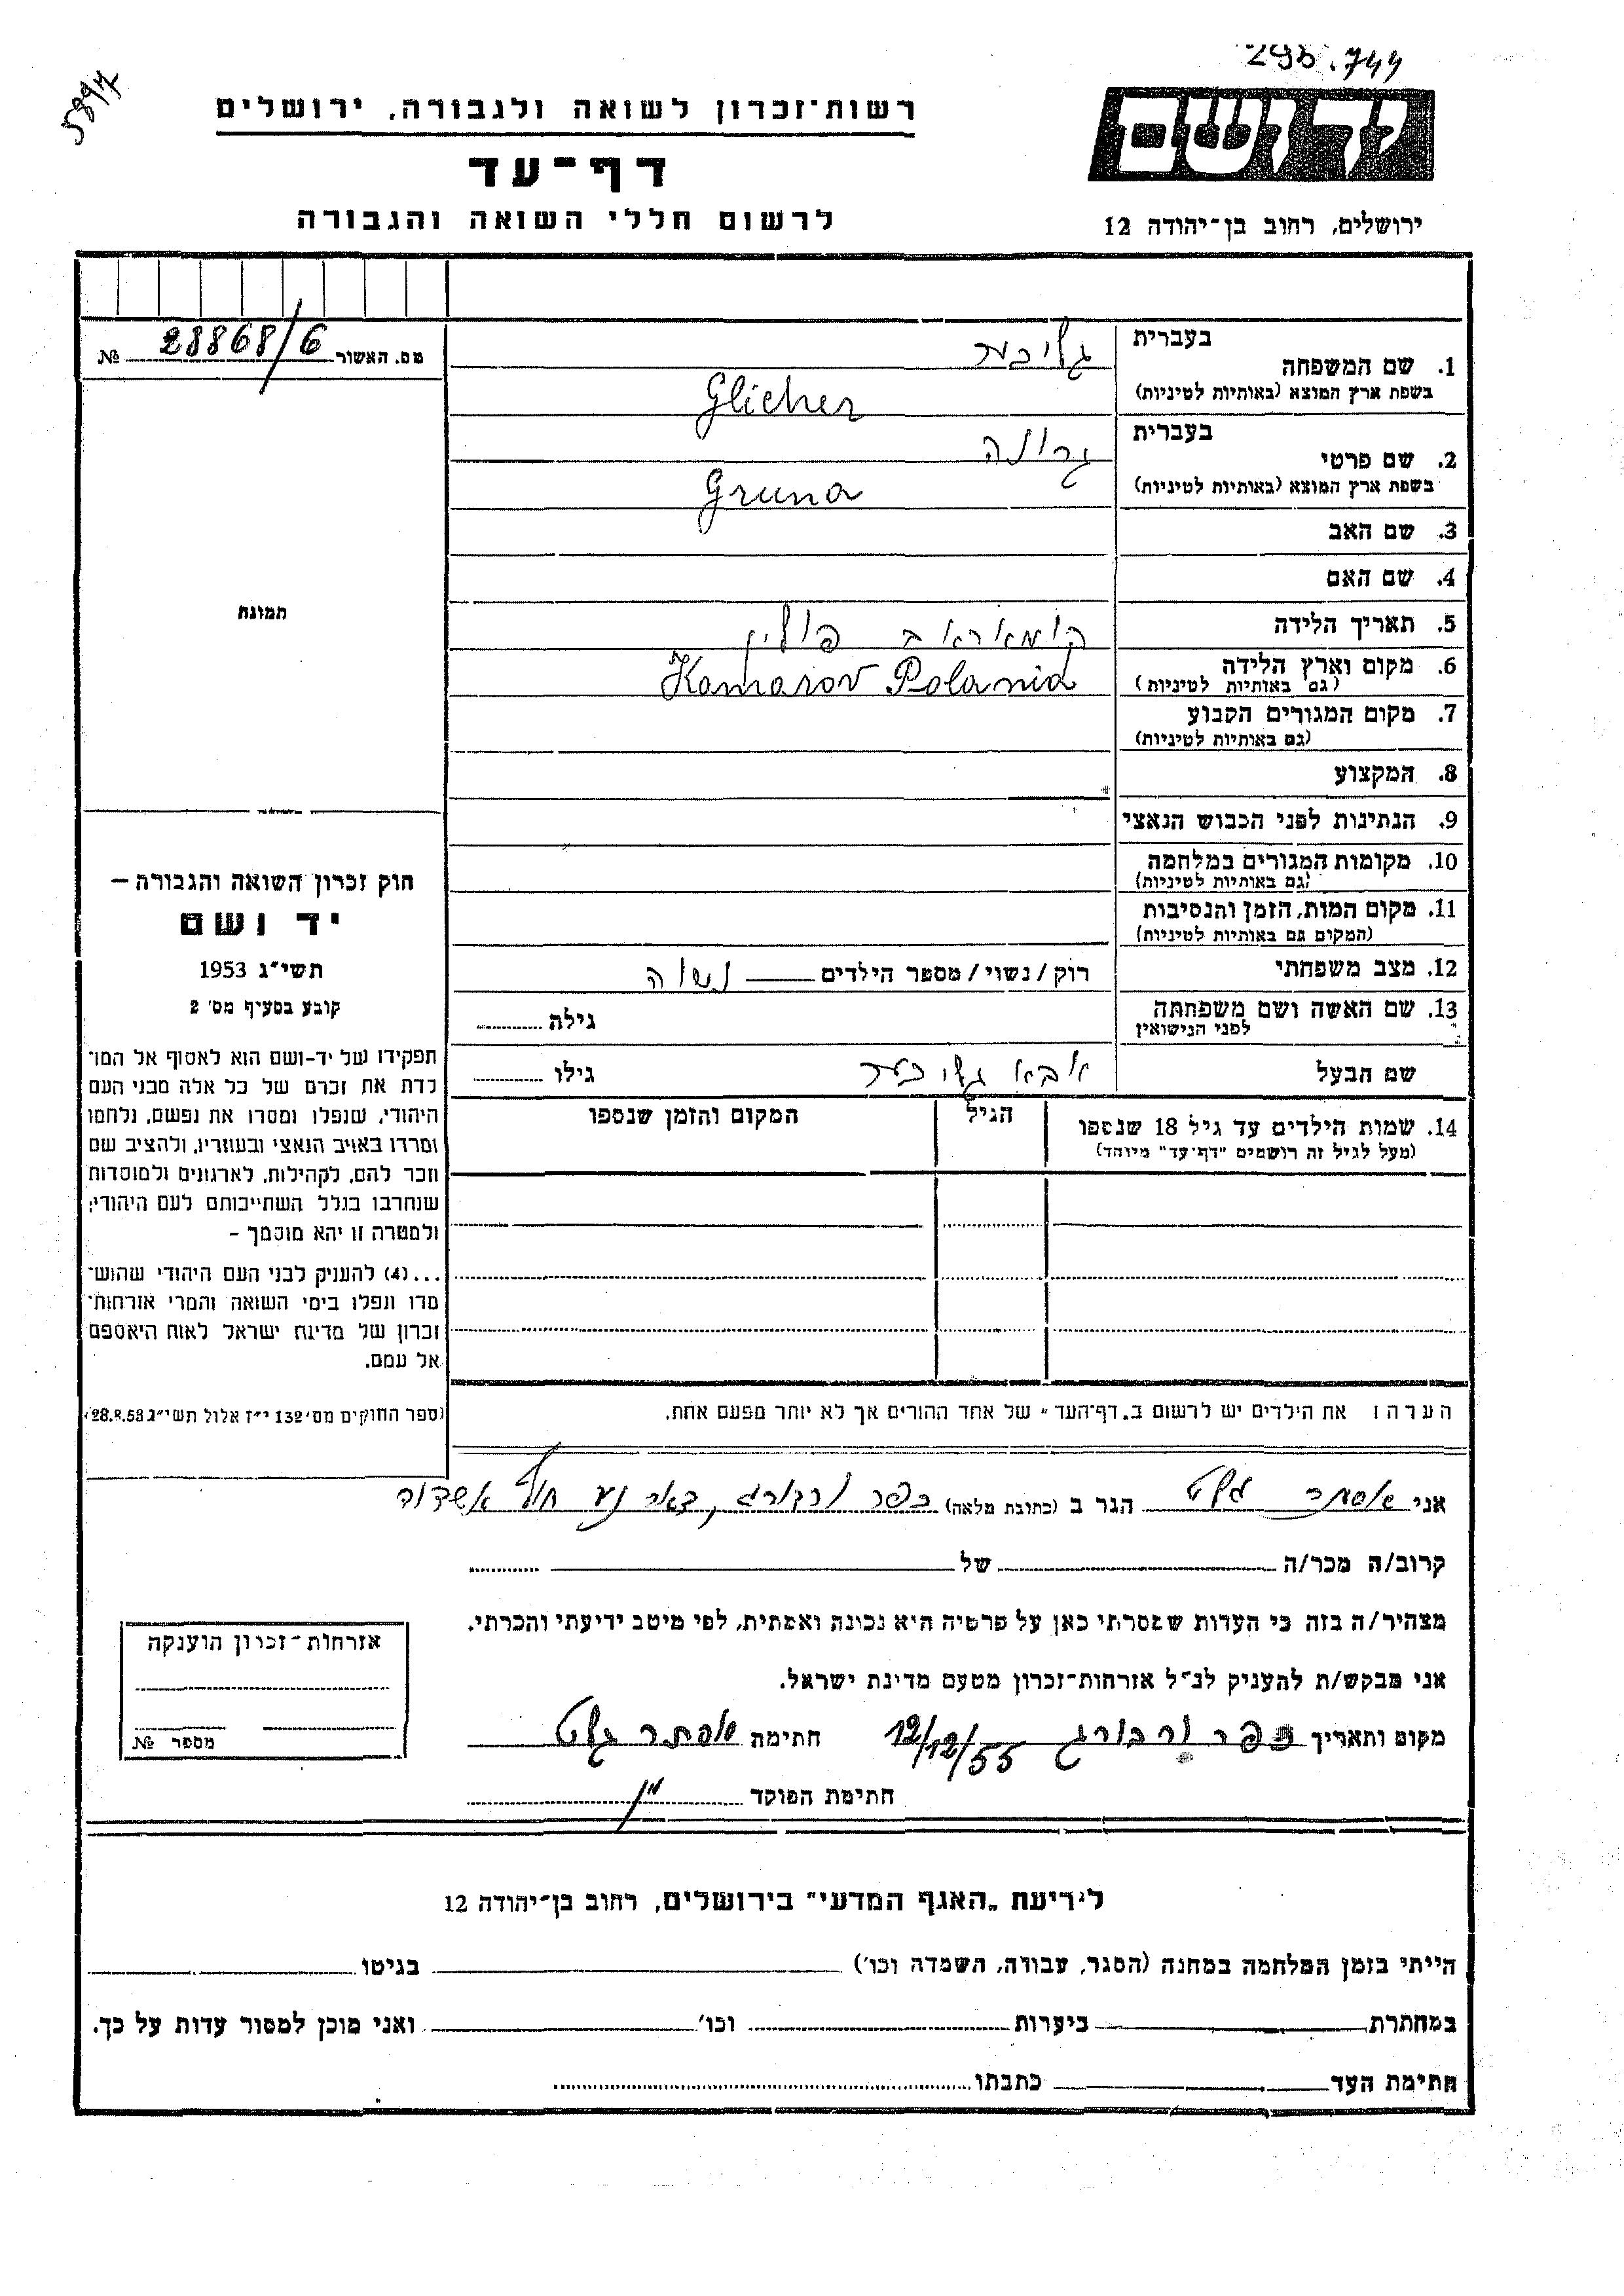 298.744
5897
ידושם
רשות־זכרון לשואה ולגבורה, ירושלים
דף־עד
לרשום חללי השואה והגבורה
ירושלים, רחוב בן־יהודה 12
מס. האשור 28868/6 №
תמונה
בעברית
1. שם המשפחה גליכר
בשפת ארץ המוצא (באותיות לטיניות) Glicher
בעברית
2. שם פרטי גרונה
בשפת ארץ המוצא (באותיות לטיניות) Gruna
3. שם האב
4. שם האם
5. תאריך הלידה קומאראב פולין
6. מקום וארץ הלידה Komarov Polania
(גם באותיות לטיניות)
7. מקום המגורים הקבוע
(גם באותיות לטיניות)
8. המקצוע
9. הנתינות לפני הכבוש הנאצי
10. מקומות המגורים במלחמה
(גם באותיות לטיניות)
11. מקום המות, הזמן והנסיבות
(המקום גם באותיות לטיניות)
12. מצב משפחתי רוק/נשוי/מספר הילדים נשוה
13. שם האשה ושם משפחתה
לפני הנישואין
גילה
שם הבעל אבא גליכער גילו
14. שמות הילדים עד גיל 18 שנספו
(מעל לגיל זה רושמים "דף־עד" מיוחד)
הגיל
המקום והזמן שנספו
חוק זכרון השואה והגבורה –
יד ושם
תשי"ג 1953
קובע בסעיף מס' 2
תפקידו של יד-ושם הוא לאסוף אל המו־
לדת את זכרם של כל אלה מבני העם
היהודי, שנפלו ומסרו את נפשם, נלחמו
ומרדו באויב הנאצי ובעוזריו, ולהציב שם
וזכר להם, לקהילות, לארגונים ולמוסדות
שנחרבו בגלל השתייכותם לעם היהודי;
ולמטרה זו יהא מוסמך –
...(4) להעניק לבני העם היהודי שהוש־
מדו ונפלו בימי השואה והמרי אזרחות־
זכרון של מדינת ישראל לאות היאספם
אל עמם.
(ספר החוקים מס' 132 י"ז אלול תשי"ג 28.8.53)
הערה: את הילדים יש לרשום ב"דף־העד" של אחד ההורים אך לא יותר מפעם אחת.
אני אסתר גלט הגר ב (כתובת מלאה) כפר ורבורג, דאר נע חוף אשדוד
קרוב/ה מכר/ה של
מצהיר/ה בזה כי העדות שמסרתי כאן על פרטיה היא נכונה ואמתית, לפי מיטב ידיעתי והכרתי.
אני מבקש/ת להעניק לנ"ל אזרחות־זכרון מטעם מדינת ישראל.
מקום ותאריך כפר ורבורג 12/12/55 חתימה אסתר גלט
חתימת הפוקד
אזרחות־זכרון הוענקה
מספר №
לידיעת "האגף המדעי" בירושלים, רחוב בן־יהודה 12
הייתי בזמן המלחמה במחנה (הסגר, עבודה, השמדה וכו') בגיטו
במחתרת ביערות וכו' ואני מוכן למסור עדות על כך.
חתימת העד כתבתו